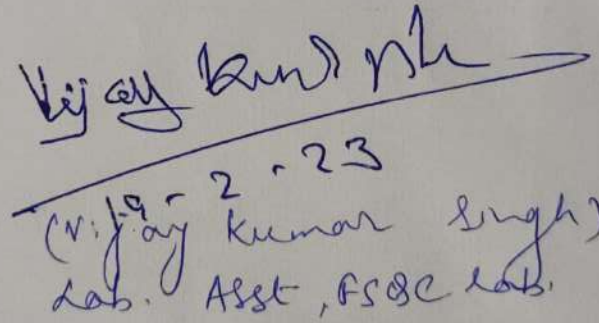 Vijay Kumar
9-2-23
(Vijay Kumar Singh)
Lab. Asst, FSQC Lab.